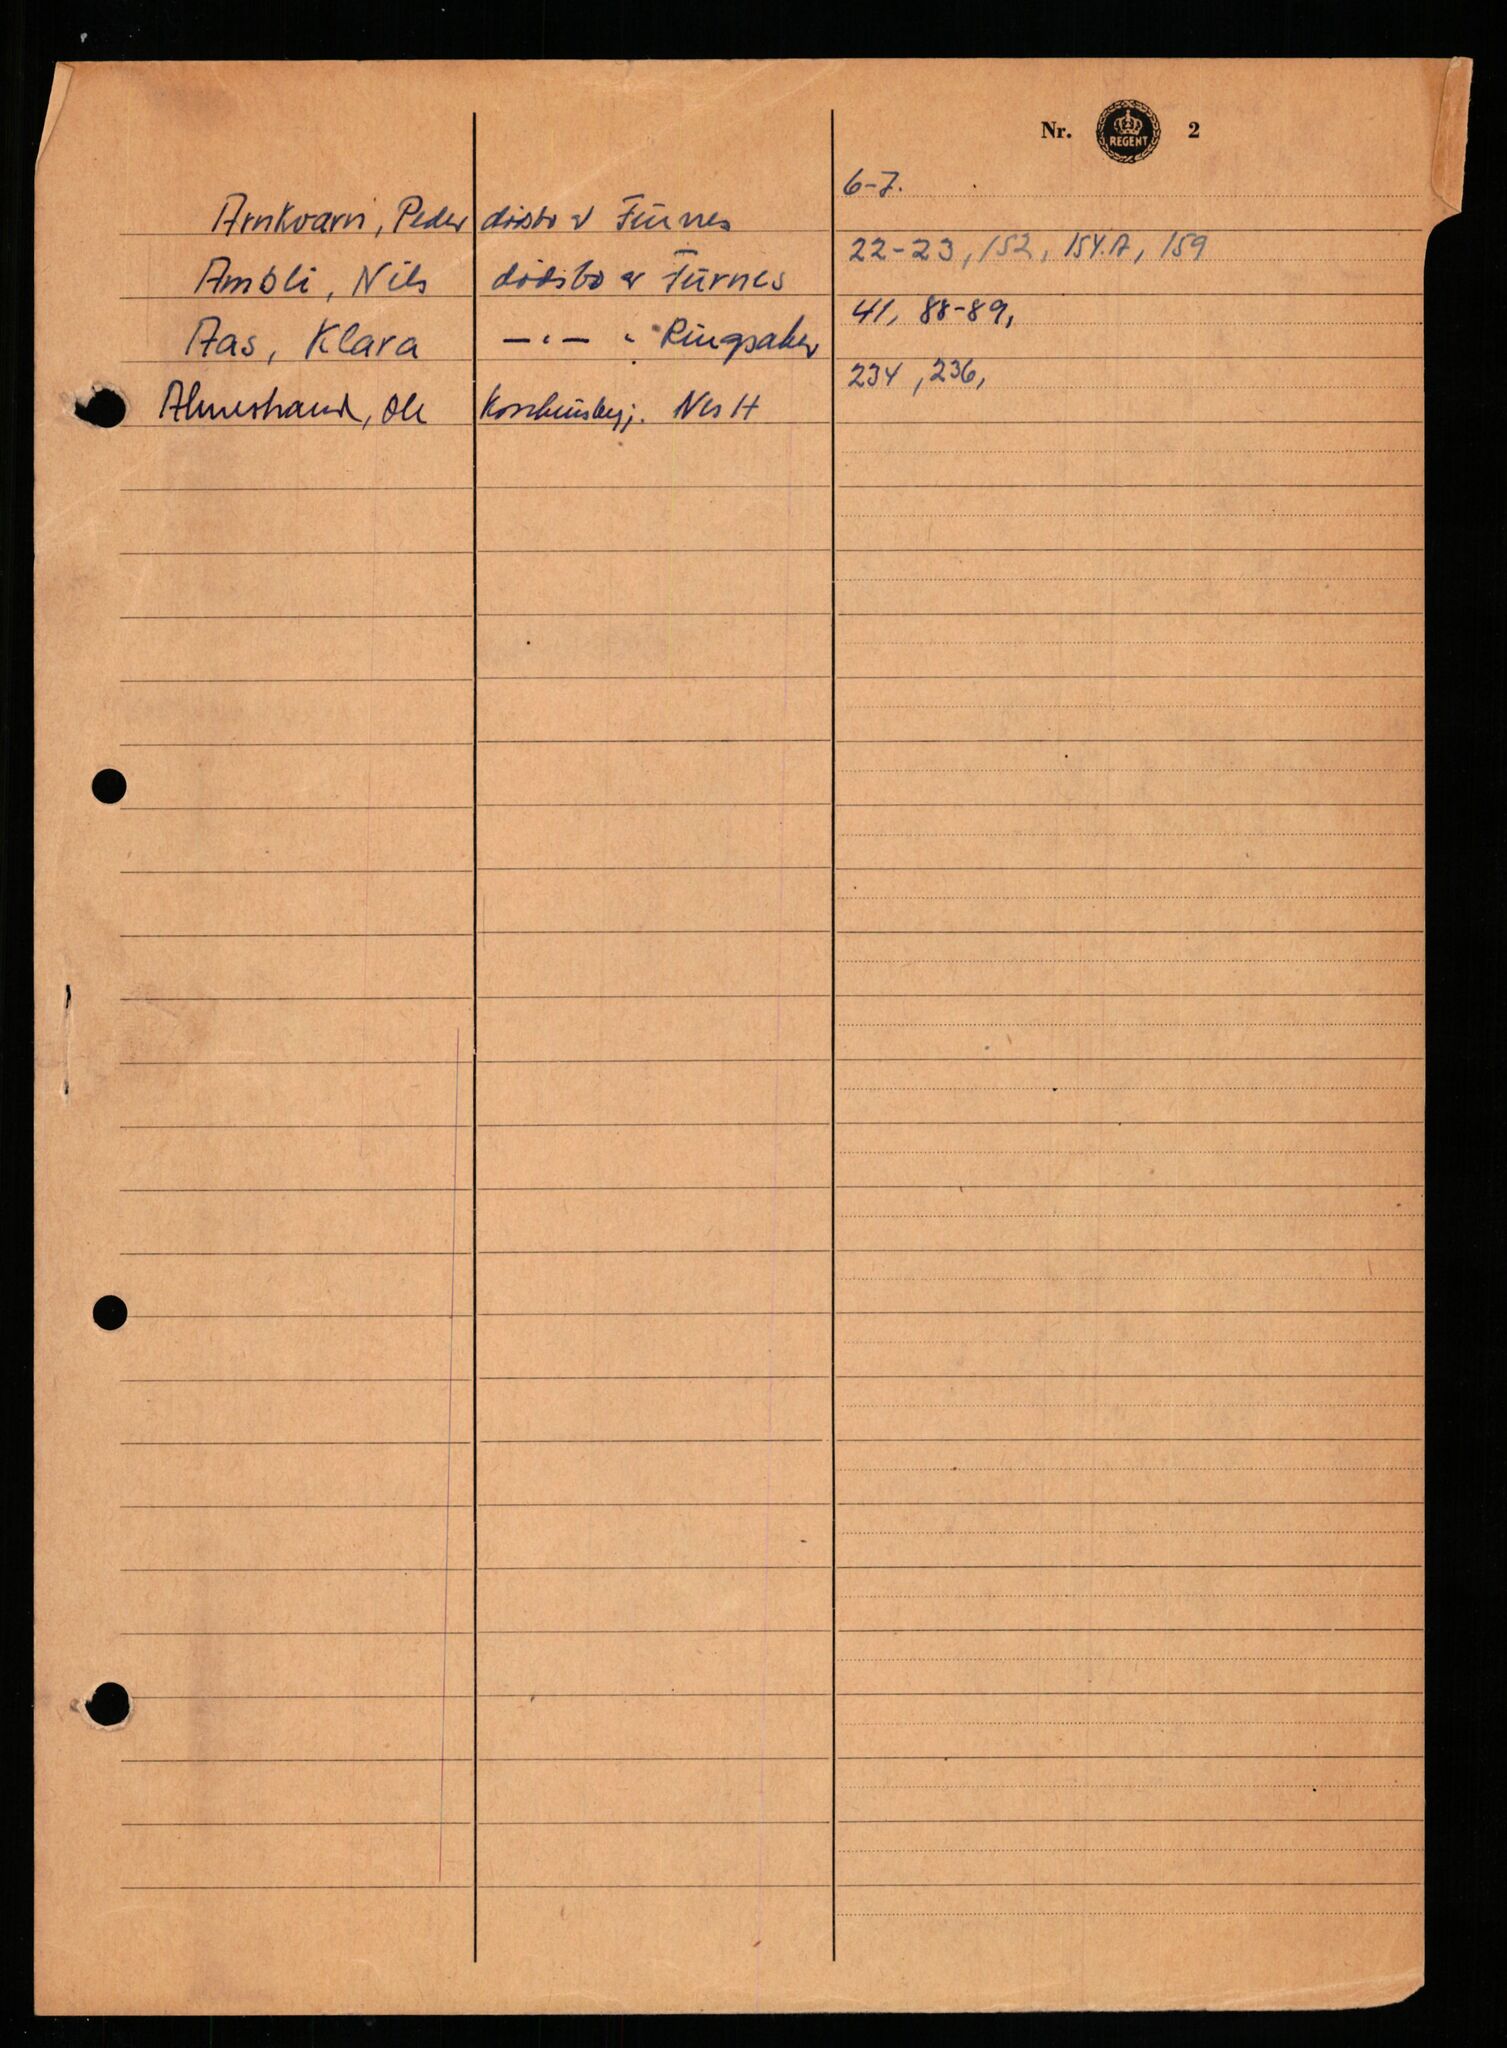 Nr. REGENT 2
6-7.
Arnkværn, Peder dødsbo Fürnes
22-23, 152, 154.A, 159
Ambli, Nils dødsbo Fürnes
41, 88-89,
Aas, Klara —"— " Ringsaker
234, 236,
Almestrand, Ole Nes H